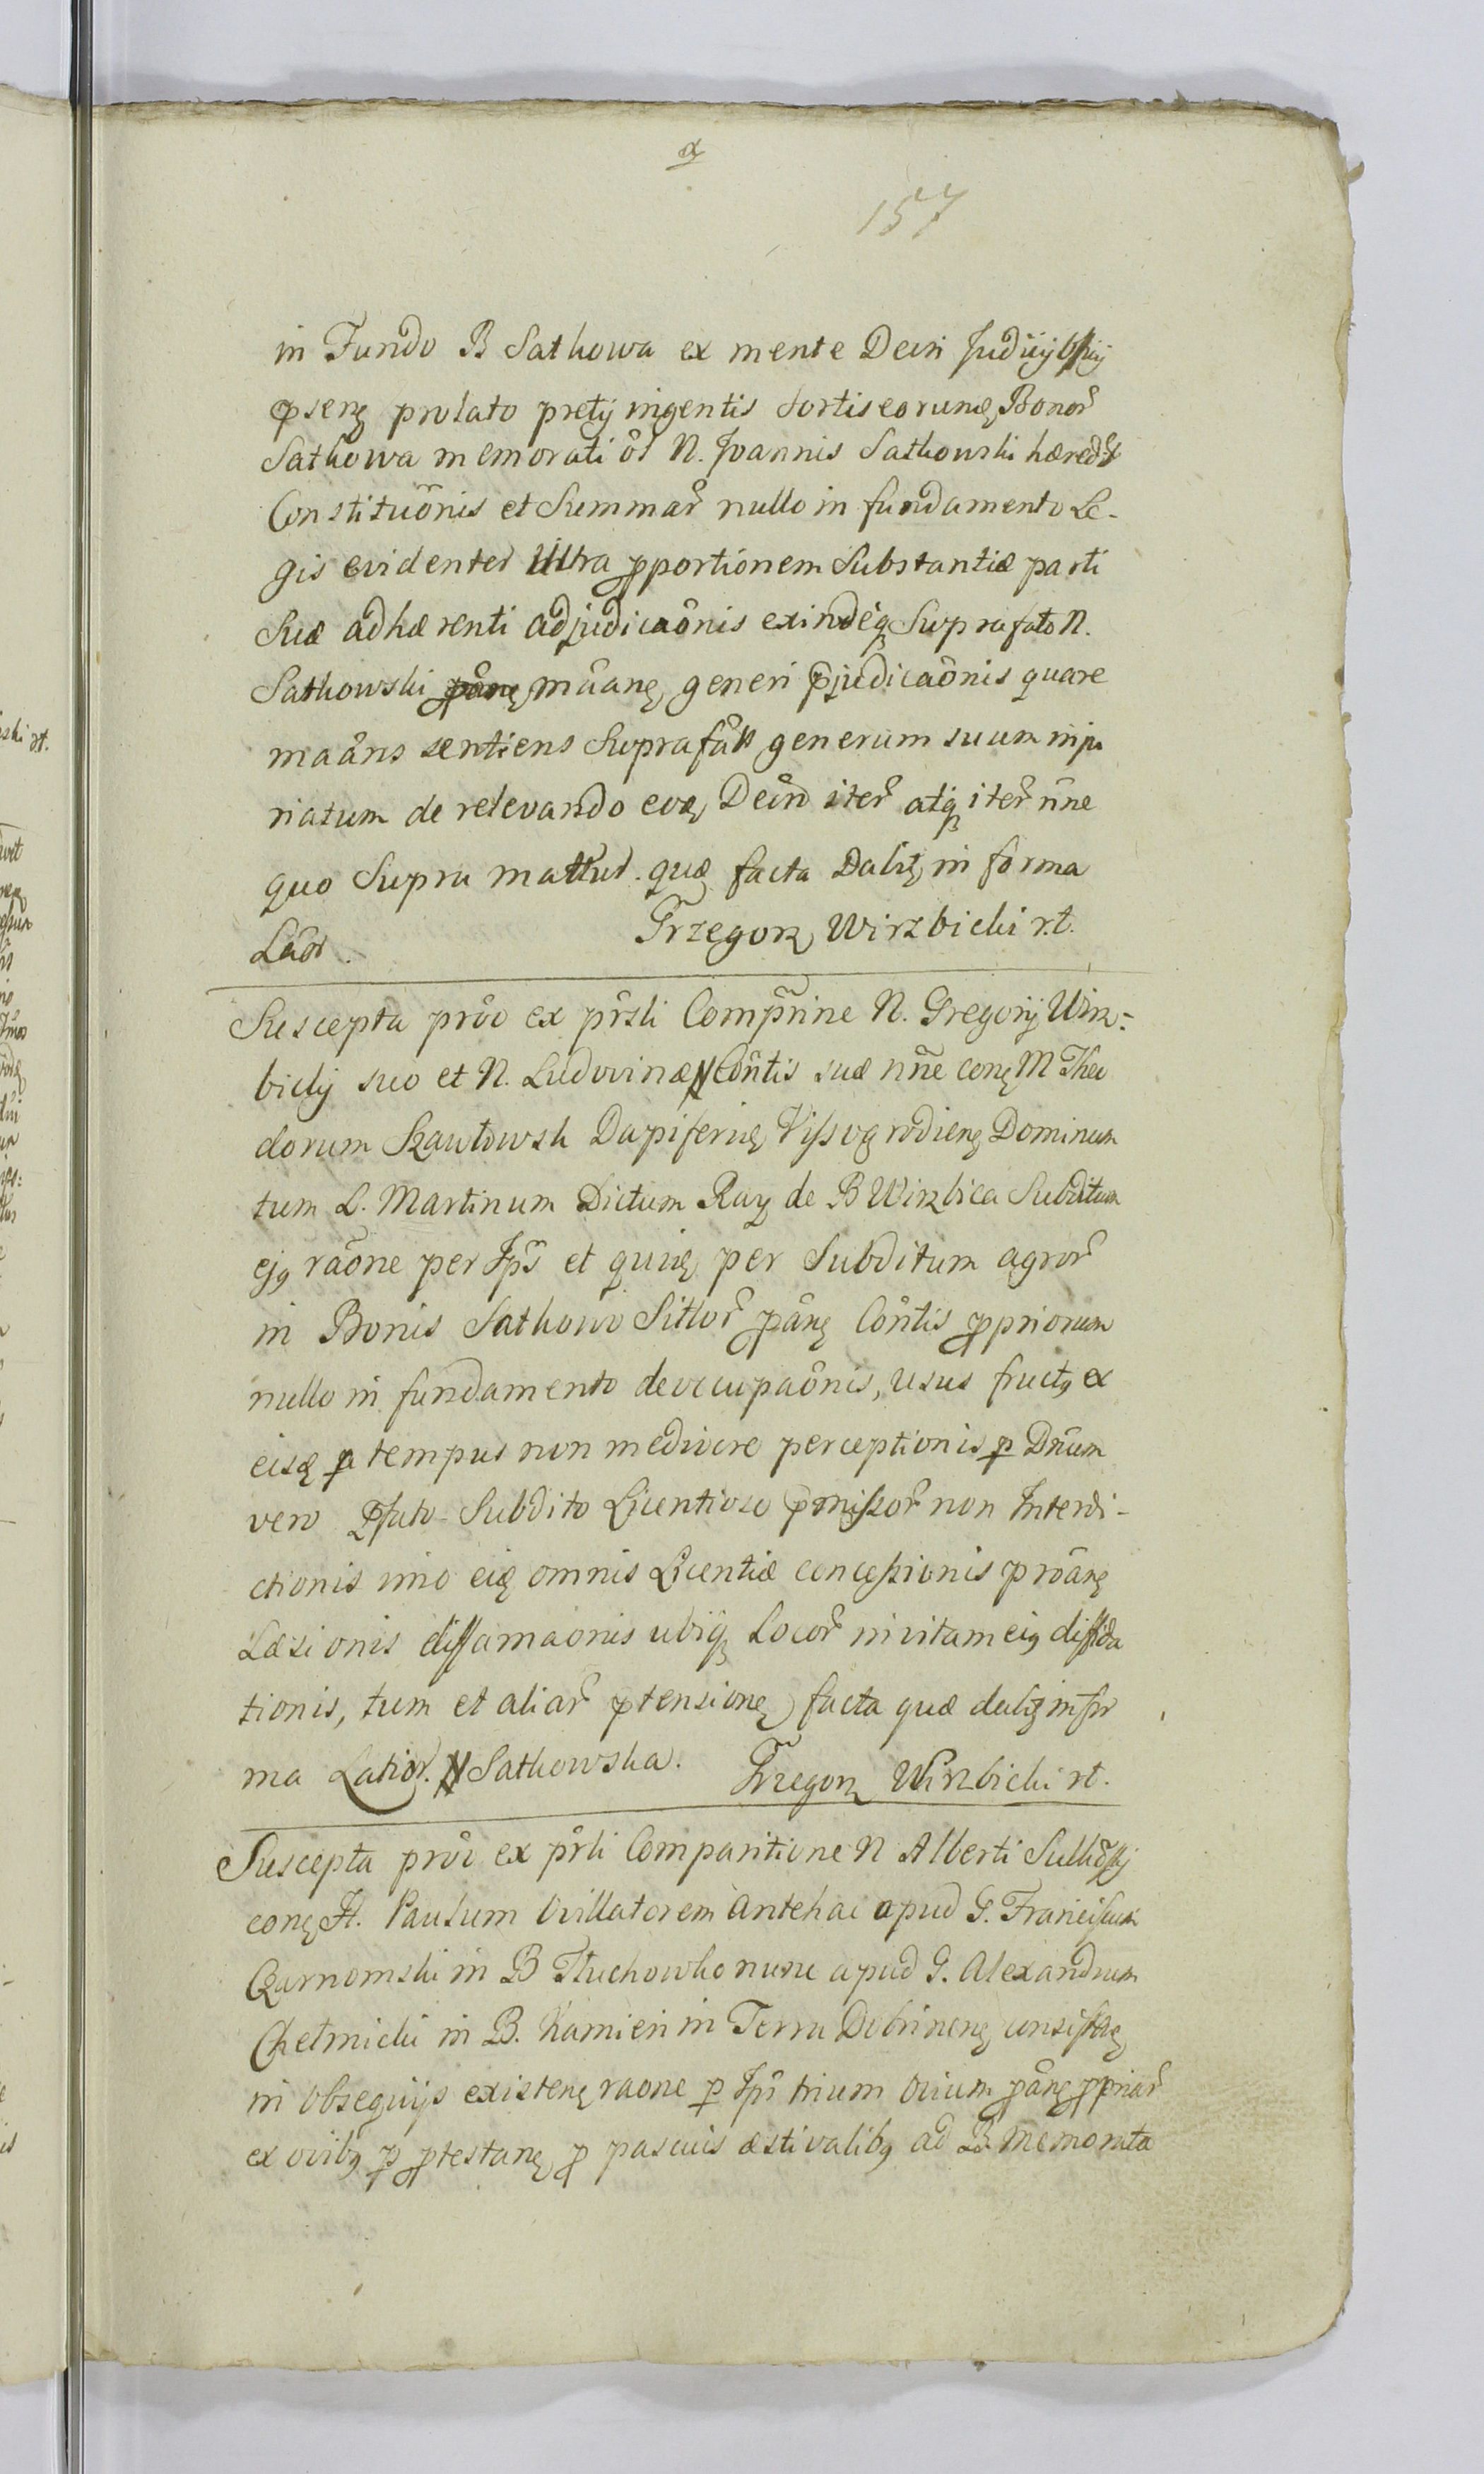 157
in Fundo B Sathowa ex mente Decri Judicij
pserę prolato pretij ingentis Sortis eorundę Bonor
Sathowa memorati ol N. Joannis Sathowski hæred
Constituõnis et Summar nullo in fundamento Le-
gis evidenter Ultra pportionem Substantiæ parti
Suæ adhærenti adjudicaõnis exindeq Suprafato N.
Sathowski mãanę generi pjudicaõnis quare
maãns sentiens Suprafãtt generum suum inju
riatum de relevando eoq Decro iter atq iter nñe
quo Supra mattur. quæ facta Dabitę in forma
Lãor. Grzegorz Wirzbicki r.t.
Suscepta prõo ex prsli Comprnine N. Gregorij Wirz-
bickij suo et N. Ludovinæ N Cõntis suæ nñe conę M Theo
dorum Szawłowsk Dapiferię Vissogrodienę Dominum
tum L. Martinum Dictum Ray de B Wirzbica Subditum
ejg rãone per Jps et quię per Subditum agror
in Bonis Sathowo Sittor pãnę Cõntis ppriorum
nullo in fundamento deoccupaõnis, usus fructg ex
eisę p tempus non mediocre perceptionis p Dñum
vero Pfato Subdito Licentiose pmissor non Interdi-
ctionis imo eię omnis Licentiæ concessionis prõanę
Læsionis diffamaonis ubiq Locor in vitam eig diffida
tionis, tum et aliar ptensionę facta quæ dabitę in for
ma Latior. N Sathowska. Grzegorz Wirzbicki rt.
Suscepta prõo ex prli Comparitione N Alberti
conę H. Paulum Ovillatorem Antehac apud G. Franciscum
Czarnomski in B Tłuchowko nunc apud G. Alexandrum
Chełmicki in B. Kamień in Terra Dobrinenę consistenę
in Obsequijs existenę raone p Jps trium Ovium pãnę ppriar
ex ovibg p ptestanę p pascuis æstivalibg ad B memorata